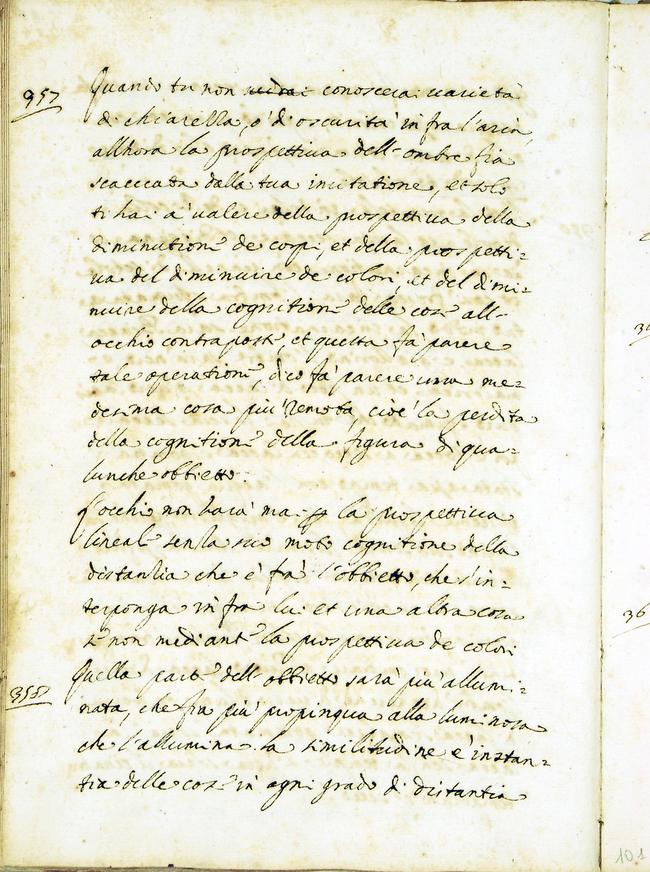 957 Quando tu non vedrai conoscerai varietà
di chiarezza, o' di oscurità infra l'aria,
allhora la prospettiva dell'ombre fia
scacciata dalla tua imitatione, et solo
ti hai à valere della prospettiva della
diminution de corpi, et della prospetti=
va del diminuire de colori, et del dimi=
nuire della cognition delle cose all-
occhio contraposte, et questa fà parere
tale operation, dico fà parere una me=
desima cosa più remota, cioè la perdita
della cognition della figura di qua=
lunche obbietto.
L'occhio non havà mai p la prospettiva
lineal senza suo moto cognitione della
distantia che è frà l'obbietto, che s'in=
terponga infra lui et una altra cosa
se non mediante la prospettiva de colori
Quella parte dell-obbietto sarà più allumi=
358 nata, che fia più propinqua alla luminosa
che l'allumina. la similitudine è instan=
tia delle cose in ogni grado di distantia
36
101